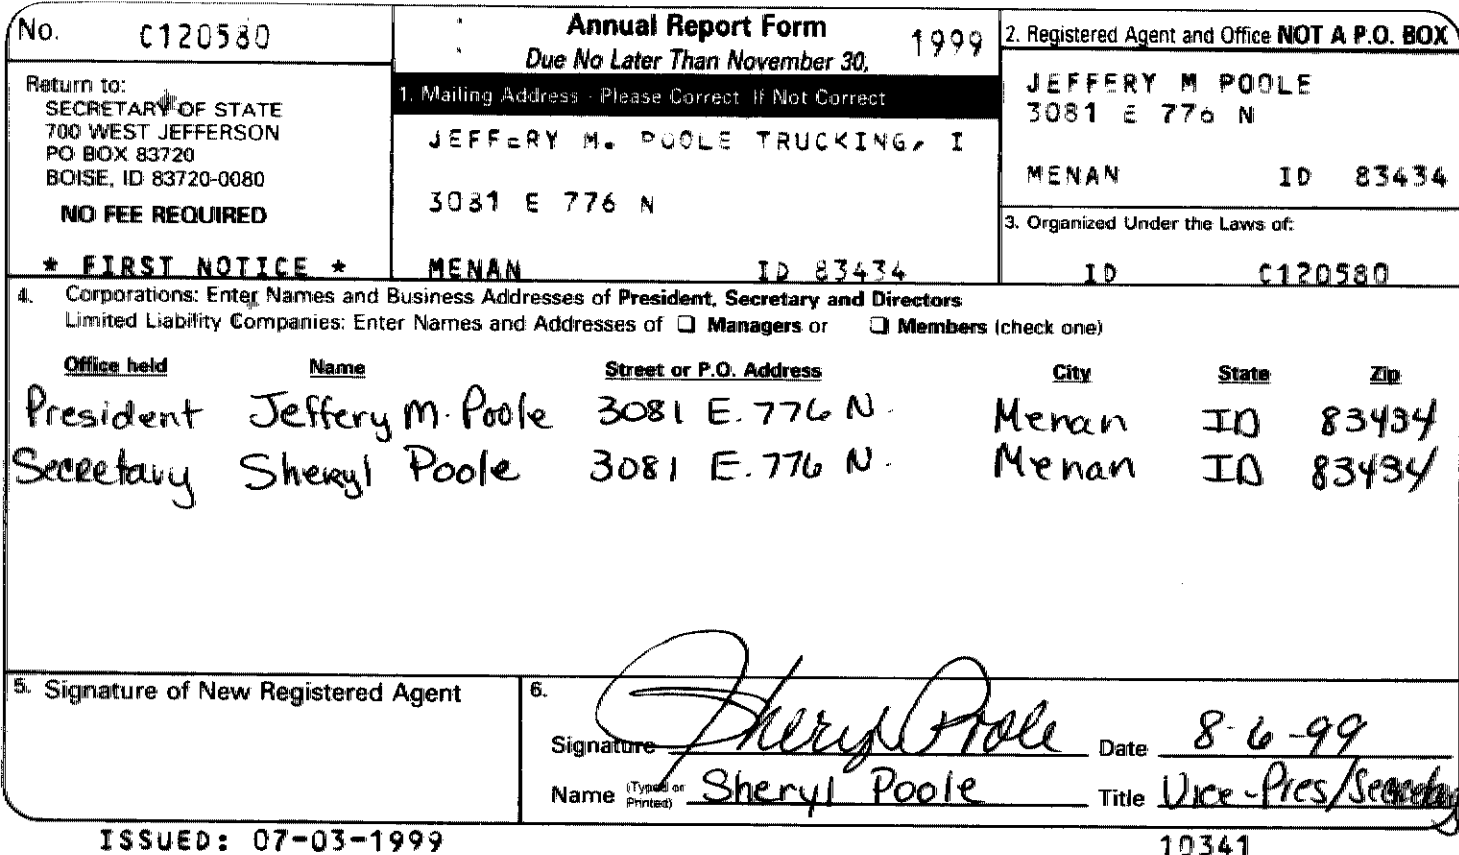 No. C120580
Return to:
SECRETARY OF STATE
700 WEST JEFFERSON
PO BOX 83720
BOISE, ID 83720-0080
NO FEE REQUIRED
* FIRST NOTICE *
Annual Report Form 1999
Due No Later Than November 30,
1. Mailing Address - Please Correct If Not Correct
JEFFERY M. POOLE TRUCKING, I
3081 E 776 N
MENAN ID 83434
2. Registered Agent and Office NOT A P.O. BOX
JEFFERY M POOLE
3081 E 776 N
MENAN ID 83434
3. Organized Under the Laws of:
ID C120580
4. Corporations: Enter Names and Business Addresses of President, Secretary and Directors
Limited Liability Companies: Enter Names and Addresses of ☐ Managers or ☐ Members (check one)
Office held Name Street or P.O. Address City State Zip
President Jeffery M. Poole 3081 E. 776 N. Menan ID 83434
Secretary Sheryl Poole 3081 E. 776 N. Menan ID 83434
5. Signature of New Registered Agent
6.
Signature Sheryl Poole Date 8-6-99
Name (Typed or Printed) Sheryl Poole Title Vice-Pres/Secretary
ISSUED: 07-03-1999 10341